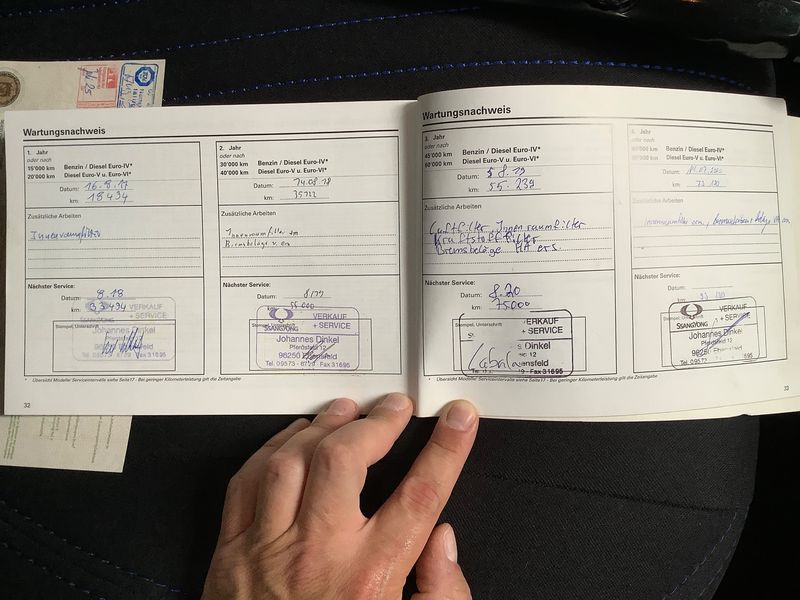 Wartungsnachweis
1. Jahr
oder nach
15'000 km Benzin / Diesel Euro-IV*
20'000 km Diesel Euro-V u. Euro-VI*
Datum: 16.8.17
km: 18494
Zusätzliche Arbeiten
Innenraumfilter
Nächster Service:
Datum: 8.18
km: 33494
VERKAUF
+ SERVICE
Stempel, Unterschrift
Johannes Dinkel
Pferdsfeld 12
96250 Ebensfeld
Tel. 09573 - 6729 - Fax 31695
* Übersicht Modelle/ Serviceintervalle siehe Seite17 - Bei geringer Kilometerleistung gilt die Zeitangabe
32
2. Jahr
oder nach
30'000 km Benzin / Diesel Euro-IV*
40'000 km Diesel Euro-V u. Euro-VI*
Datum: 14.08.18
km: 35722
Zusätzliche Arbeiten
Innenraumfilter
Bremsbeläge v. en
Nächster Service:
Datum: 8/19
km: 55.000
VERKAUF
+ SERVICE
SSANGYONG
Johannes Dinkel
Pferdsfeld 12
96250 Ebensfeld
Tel. 09573 - 6729 - Fax 31695
Wartungsnachweis
3. Jahr
oder nach
45'000 km Benzin / Diesel Euro-IV*
60'000 km Diesel Euro-V u. Euro-VI*
Datum: 5 8.19
km: 55.239
Zusätzliche Arbeiten
Luftfilter Innenraumfilter
Kraftstofffilter
Bremsbeläge HA ers.
Nächster Service:
Datum: 8.20
km: 75000
Stempel, Unterschrift
VERKAUF
+ SERVICE
s Dinkel
nc 12
ensfeld
Fax 31695
* Übersicht Modelle/ Serviceintervalle siehe Seite17 - Bei geringer Kilometerleistung gilt die Zeitangabe
4. Jahr
oder nach
Benzin / Diesel Euro-IV*
Diesel Euro-V u. Euro-VI*
Datum:
km:
Zusätzliche Arbeiten
Nächster Service:
Datum:
km:
VERKAUF
+ SERVICE
SSANGYONG
Johannes Dinkel
Pferdsfeld 12
96250 Ebensfeld
Tel. 09573 - 6729 - Fax 31695
33